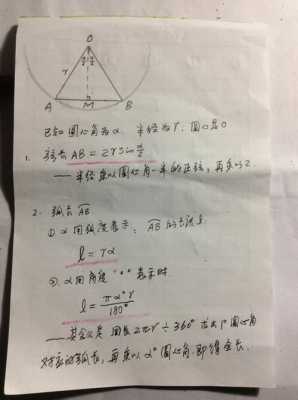 O
α/2 α/2
r
A M B
已知圆心角为α, 半径为r, 圆心是O
1. 弦长 AB = 2r sin α/2
—— 半径乘以圆心角一半的正弦, 再乘以2.
2. 弧长 AB
① α用弧度表示:
l = rα
② α用角度 "°" 表示时
l = πα°r/180°
—— 其含义是 周长2πr ÷ 360° 求出1°圆心角
对应的弧长, 再乘以α°圆心角. 即得全长.